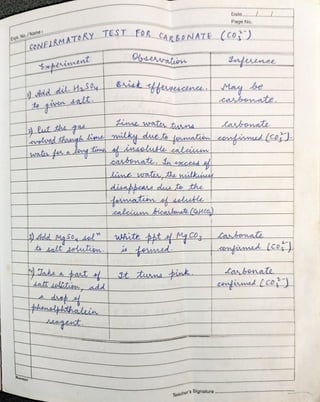 Date...../...../.....
Page No.
Expt. No./Name :
CONFIRMATORY TEST FOR CARBONATE (CO₃²⁻)
Experiment Observation Inference
1) Add dil H₂SO₄ Brisk effervescence. May be
to given salt. carbonate.
2) Put the gas Lime water turns Carbonate
evolved through lime milky due to formation confirmed (CO₃²⁻).
water for a long time of insoluble calcium
carbonate. In excess of
lime water, the milkiness
disappears due to the
formation of soluble
calcium bicarbonate
3) Add MgSO₄ solⁿ White ppt of MgCO₃ Carbonate
to salt solution is formed. confirmed (CO₃²⁻).
4) Take a part of It turns pink. Carbonate
salt solution, add confirmed (CO₃²⁻).
a drop of
phenolphthalein
reagent.
Teacher's Signature